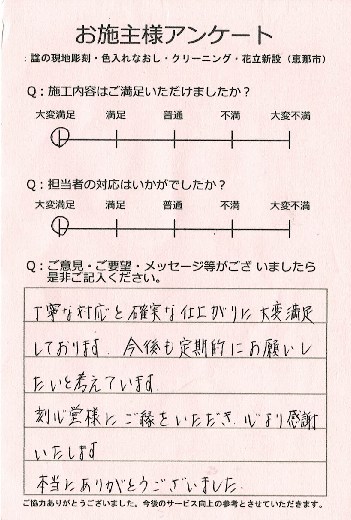 お施主様アンケート
：墓の現地彫刻・色入れなおし・クリーニング・花立新設（恵那市）
Q：施工内容はご満足いただけましたか？
大変満足 満足 普通 不満 大変不満
Q：担当者の対応はいかがでしたか？
大変満足 満足 普通 不満 大変不満
Q：ご意見・ご要望・メッセージ等がございましたら
是非ご記入ください。
丁寧な対応と確実な仕上がりに大変満足
しております。今後も定期的にお願いし
たいと考えています。
刻心堂様にご縁をいただき、心より感謝
いたします
本当にありがとうございました。
ご協力ありがとうございました。今後のサービス向上の参考とさせていただきます。